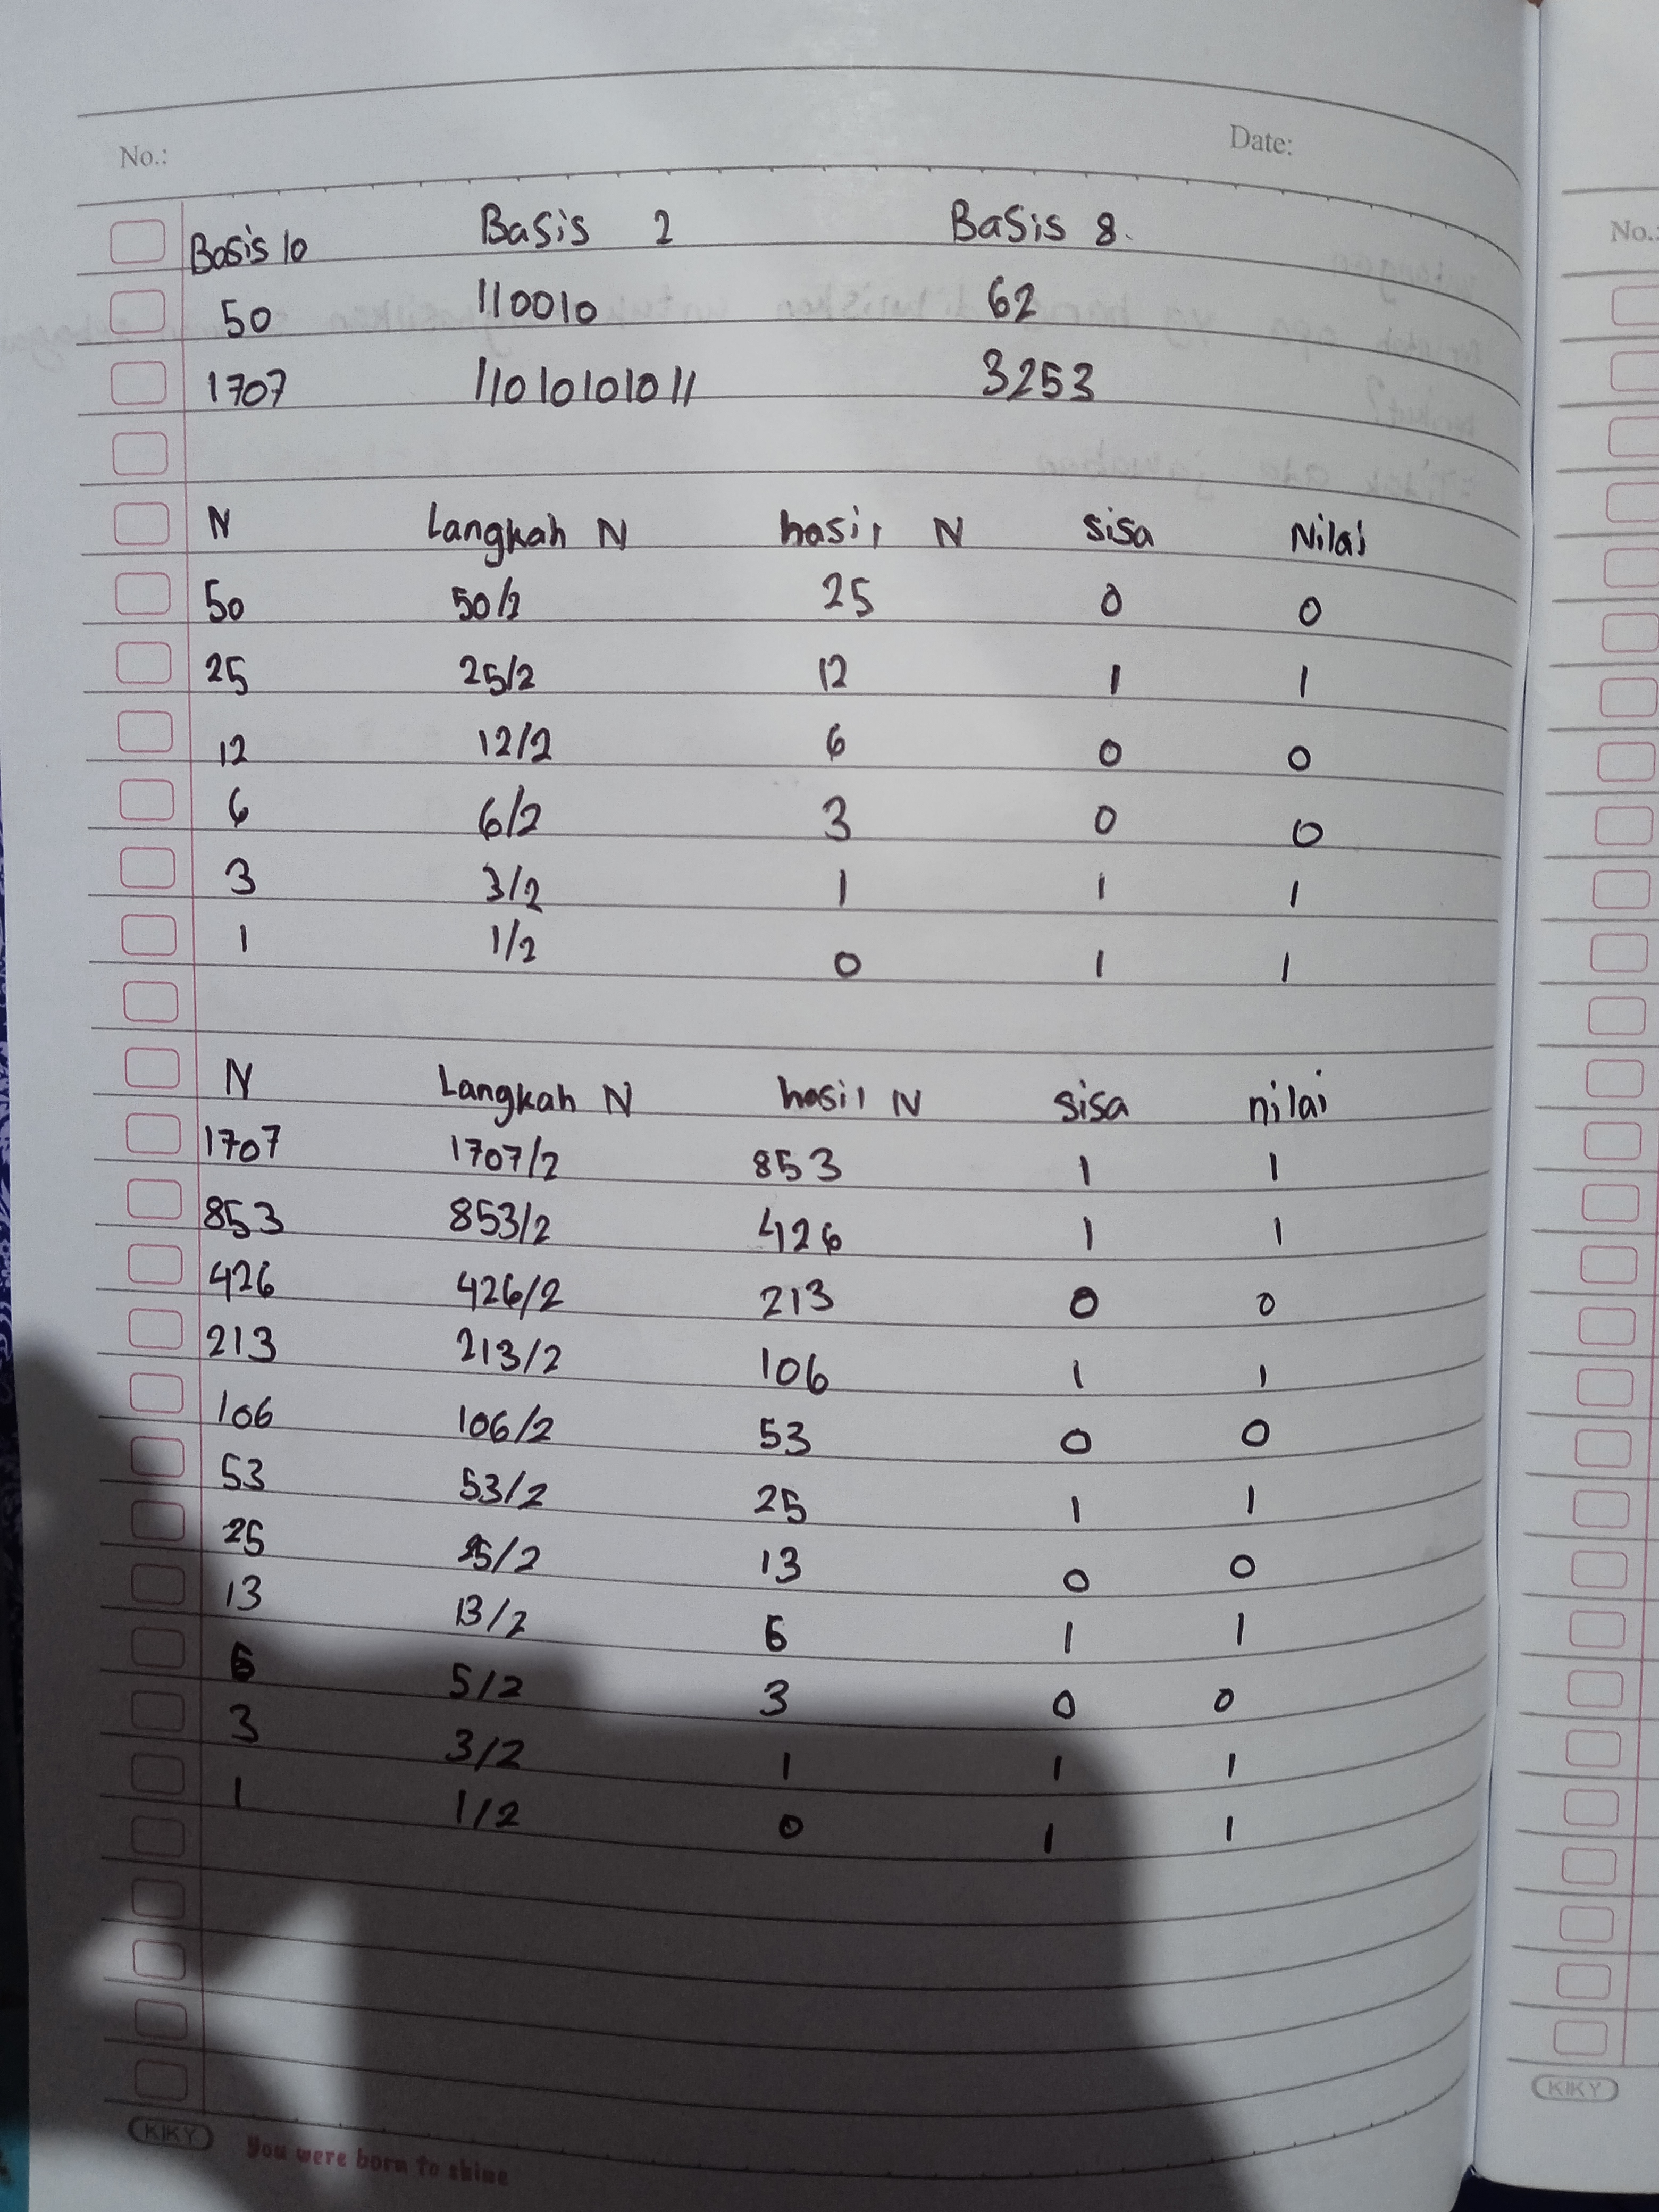 No.: Date:
Basis 10 Basis 2 Basis 8
50 110010 62
1707 11010101011 3253
N Langkah N hasil N sisa Nilai
50 50/2 25 0 0
25 25/2 12 1 1
12 12/2 6 0 0
6 6/2 3 0 0
3 3/2 1 1 1
1 1/2 0 1 1
N Langkah N hasil N sisa nilai
1707 1707/2 853 1 1
853 853/2 426 1 1
426 426/2 213 0 0
213 213/2 106 1 1
106 106/2 53 0 0
53 53/2 25 1 1
25 25/2 13 0 0
13 13/2 6 1 1
6 5/2 3 0 0
3 3/2 1 1 1
1 1/2 0 1 1
KIKY You were born to shine
No.:
KIKY